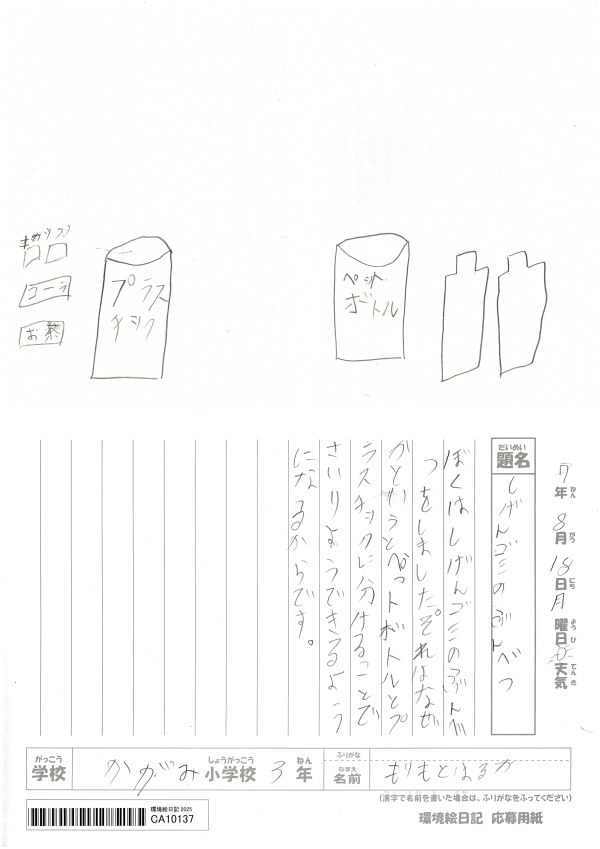 プラス
チック
ペット
ボトル
コーラ
お茶
7年8月18日月曜日天気
ねん
がつ
にち
ようび
てんき
だいめい
題名
しげんゴミのぶんべつ
ぼくはしげんゴミのぶんべ
つをしました。それはなぜ
かというとペットボトルとプ
ラスチックに分けることで
さいりようできるよう
になるからです。
がっこう
学校
かがみ
しょうがっこう
小学校
3
ねん
年
ふりがな
なまえ
名前
もりもとはるか
(漢字で名前を書いた場合は、ふりがなをふってください)
環境絵日記 2025
CA10137
環境絵日記 応募用紙